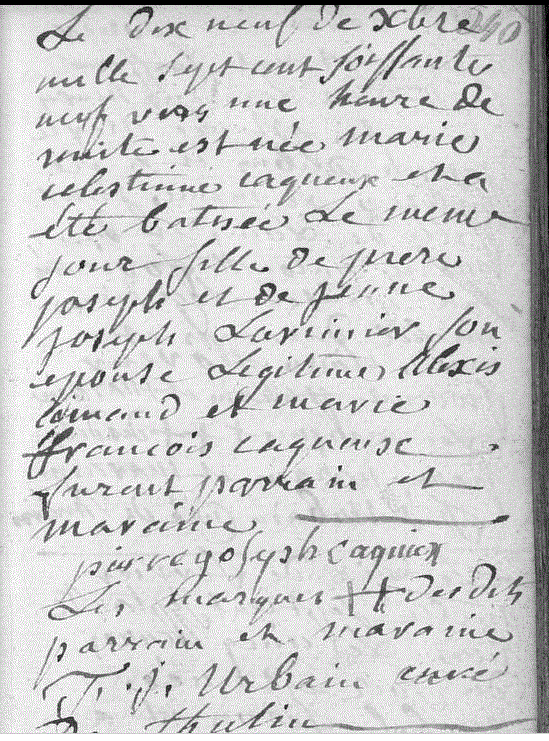 Le dix neuf de xbre 240
mille sept cent soissante
neuf vers une heure de
nuite est née marie
celestinne caqueux et a
été batisée Le meme
jour fille de piere
joseph et de jenne
joseph Lavinier son
epouse Legitime, Alexis
et marie
francois caqueuse
furent parrain et
maraine
pierre joseph Caquiex
Les marques ++ des dits
parrain et maraine
T. j. Urbain curé
D. thulin